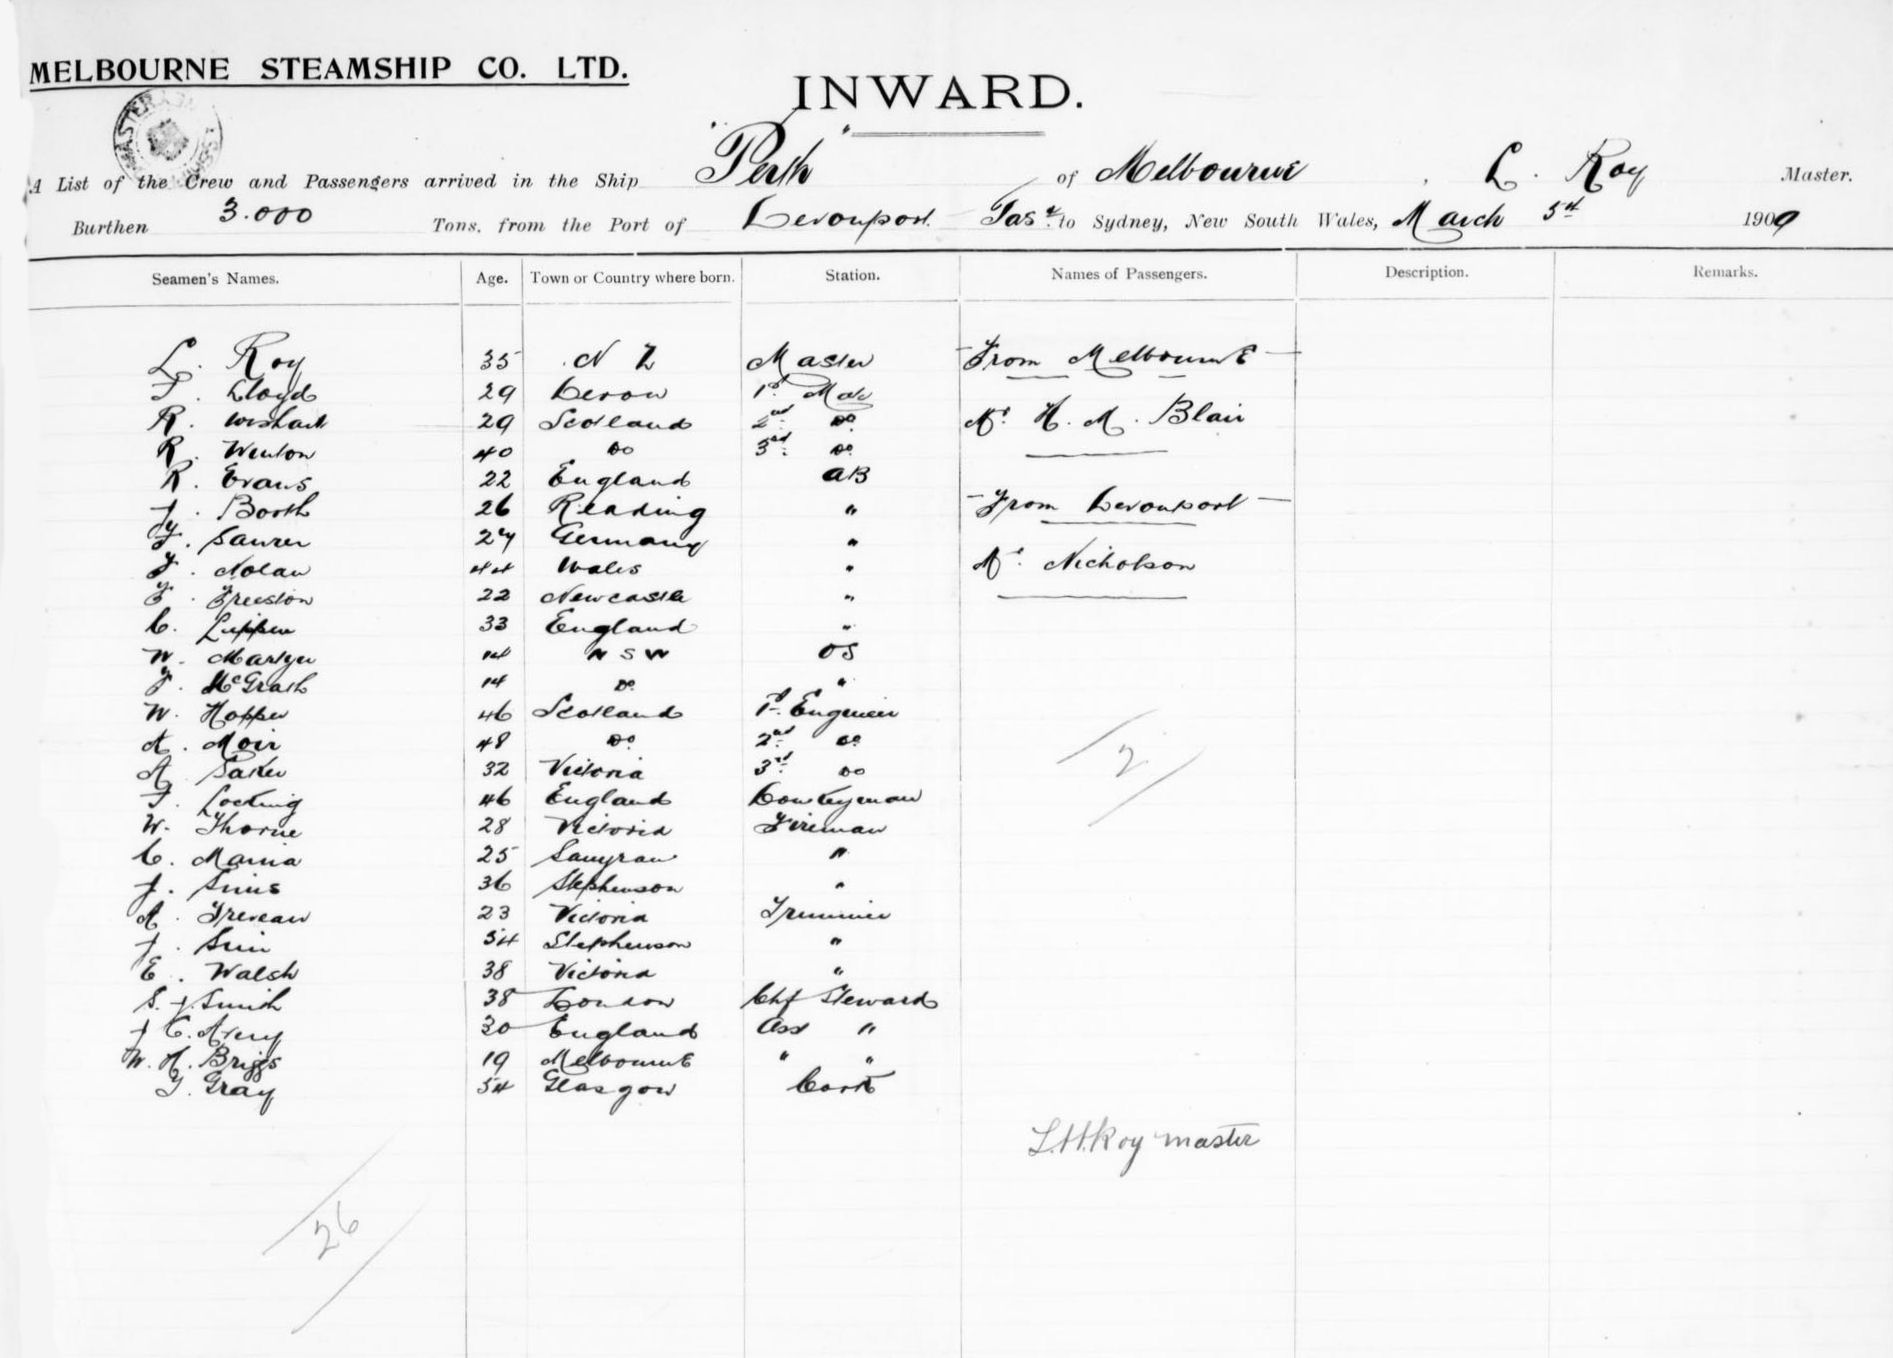 MELBOURNE STEAMSHIP CO. LTD.
INWARD.
A List of the Crew and Passengers arrived in the Ship "Perth" of Melbourne, L. Roy Master.
Burthen 3.000 Tons. from the Port of Devonport Tas. to Sydney, New South Wales, March 5th 1909
Seamen's Names. Age. Town or Country where born. Station. Names of Passengers. Description. Remarks.
L. Roy 35 N Z Master From Melbourne
F. Lloyd 29 Devon 1st Mate
R. Wishart 29 Scotland 2nd Do Mr. H. M. Blair
R. Wenton 40 Do 3rd Do
R. Evans 22 England AB
J. Booth 26 Reading " From Devonport
27 Germany "
J. Nolan 44 Wales " Mr. Nicholson
F. Freeston 22 Newcastle "
C. 33 England "
W. Martyn 14 N S W OS
F. McGrath 14 Do "
W. Hopper 46 Scotland 1st Engineer
A. Moir 48 Do 2nd Do
A. 32 Victoria 3rd Do
F. Locking 46 England Donkeyman
W. Thorne 28 Victoria Fireman
C. Mania 25 "
J. Sims 36 Stephenson "
A. Trevean 23 Victoria Trimmer
J. 54 Stephenson "
E. Walsh 38 Victoria "
S. J. Smith 38 London Chf Steward
J C. Avery 30 England Ass "
W. H. Briggs 19 Melbourne " "
G. Gray 54 Glasgow Cook
2
L.H. Roy master
26